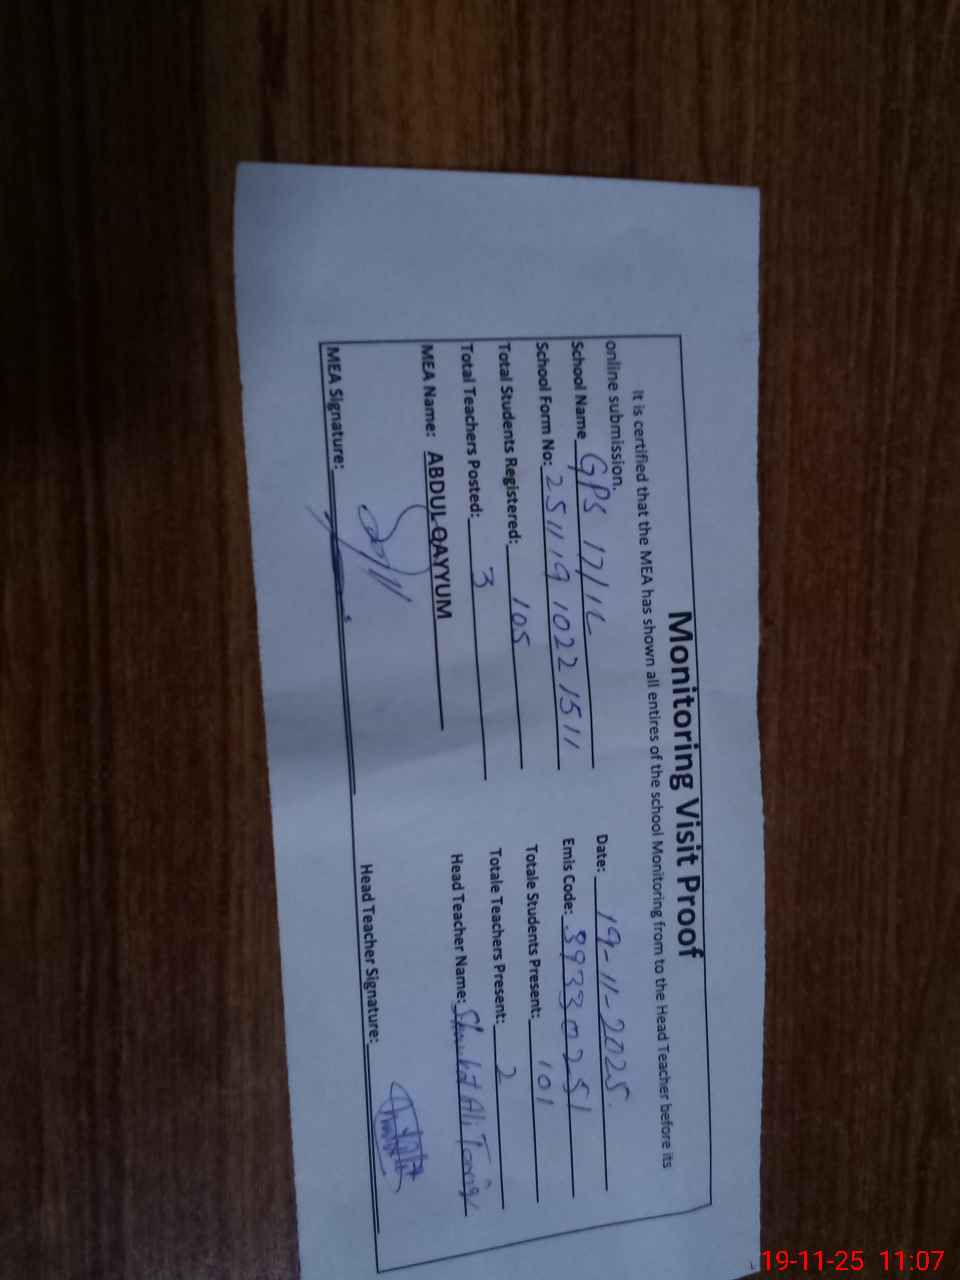 Monitoring Visit Proof
It is certified that the MEA has shown all entires of the school Monitoring from to the Head Teacher before its
online submission.
School Name GPS 17/1L Date: 19-11-2025.
School Form No: 2511191022 1511 Emis Code: 39330251
Total Students Registered: 105 Totale Students Present: 101
Total Teachers Posted: 3 Totale Teachers Present: 2
MEA Name: ABDUL QAYYUM Head Teacher Name: Ali
MEA Signature: Head Teacher Signature:
19-11-25 11:07